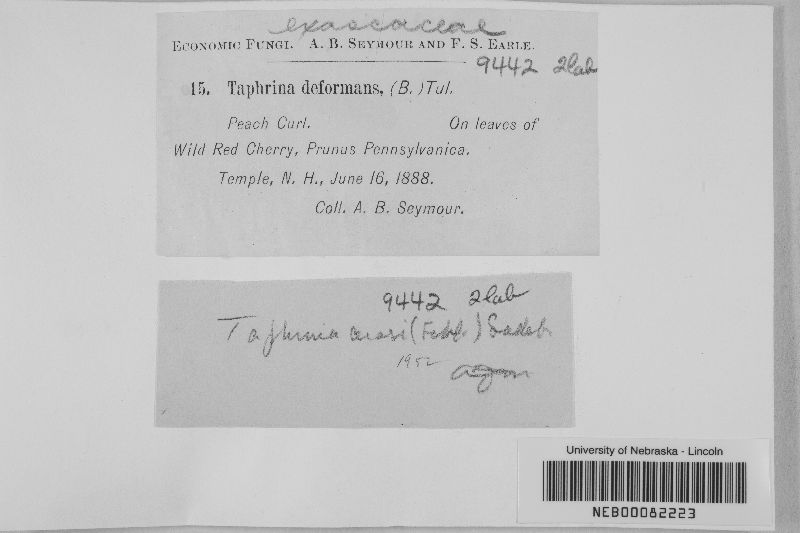 exoascaceae
ECONOMIC FUNGI. A. B. SEYMOUR AND F. S. EARLE.
9442 2lab
15. Taphrina deformans, (B.) Tul.
Peach Curl. On leaves of
Wild Red Cherry, Prunus Pennsylvanica.
Temple, N. H., June 16, 1888.
Coll. A. B. Seymour.
9442 2lab
Taphrina cerasi (Fckl.) Sadeb
1952
University of Nebraska - Lincoln
NEB00082223